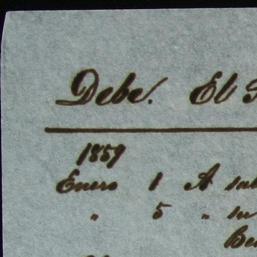 Debe. El
1859
Enero 1 A
" 5 "